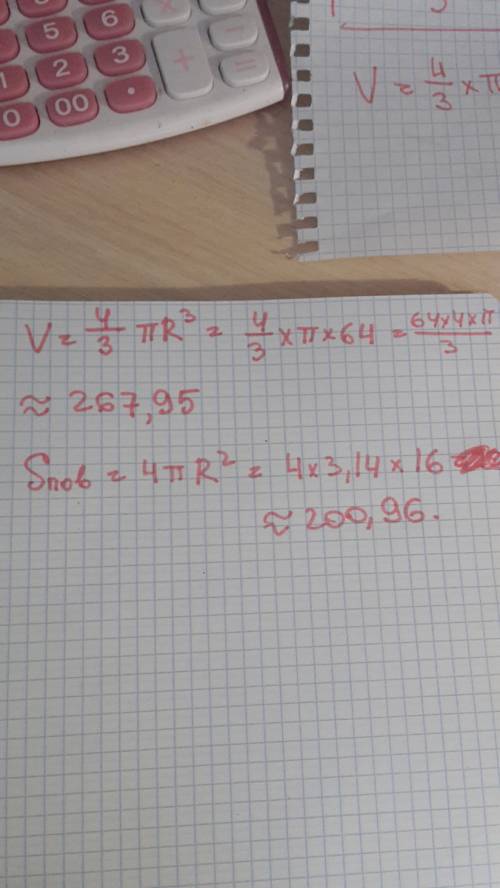 5 6 ×
1 2 3 + −
0 00 . =
3
V = 4/3 × π
V = 4/3 πR³ = 4/3 × π × 64 = 64×4×π/3
≈ 267,95
Sпов = 4πR² = 4×3,14×16
≈ 200,96.